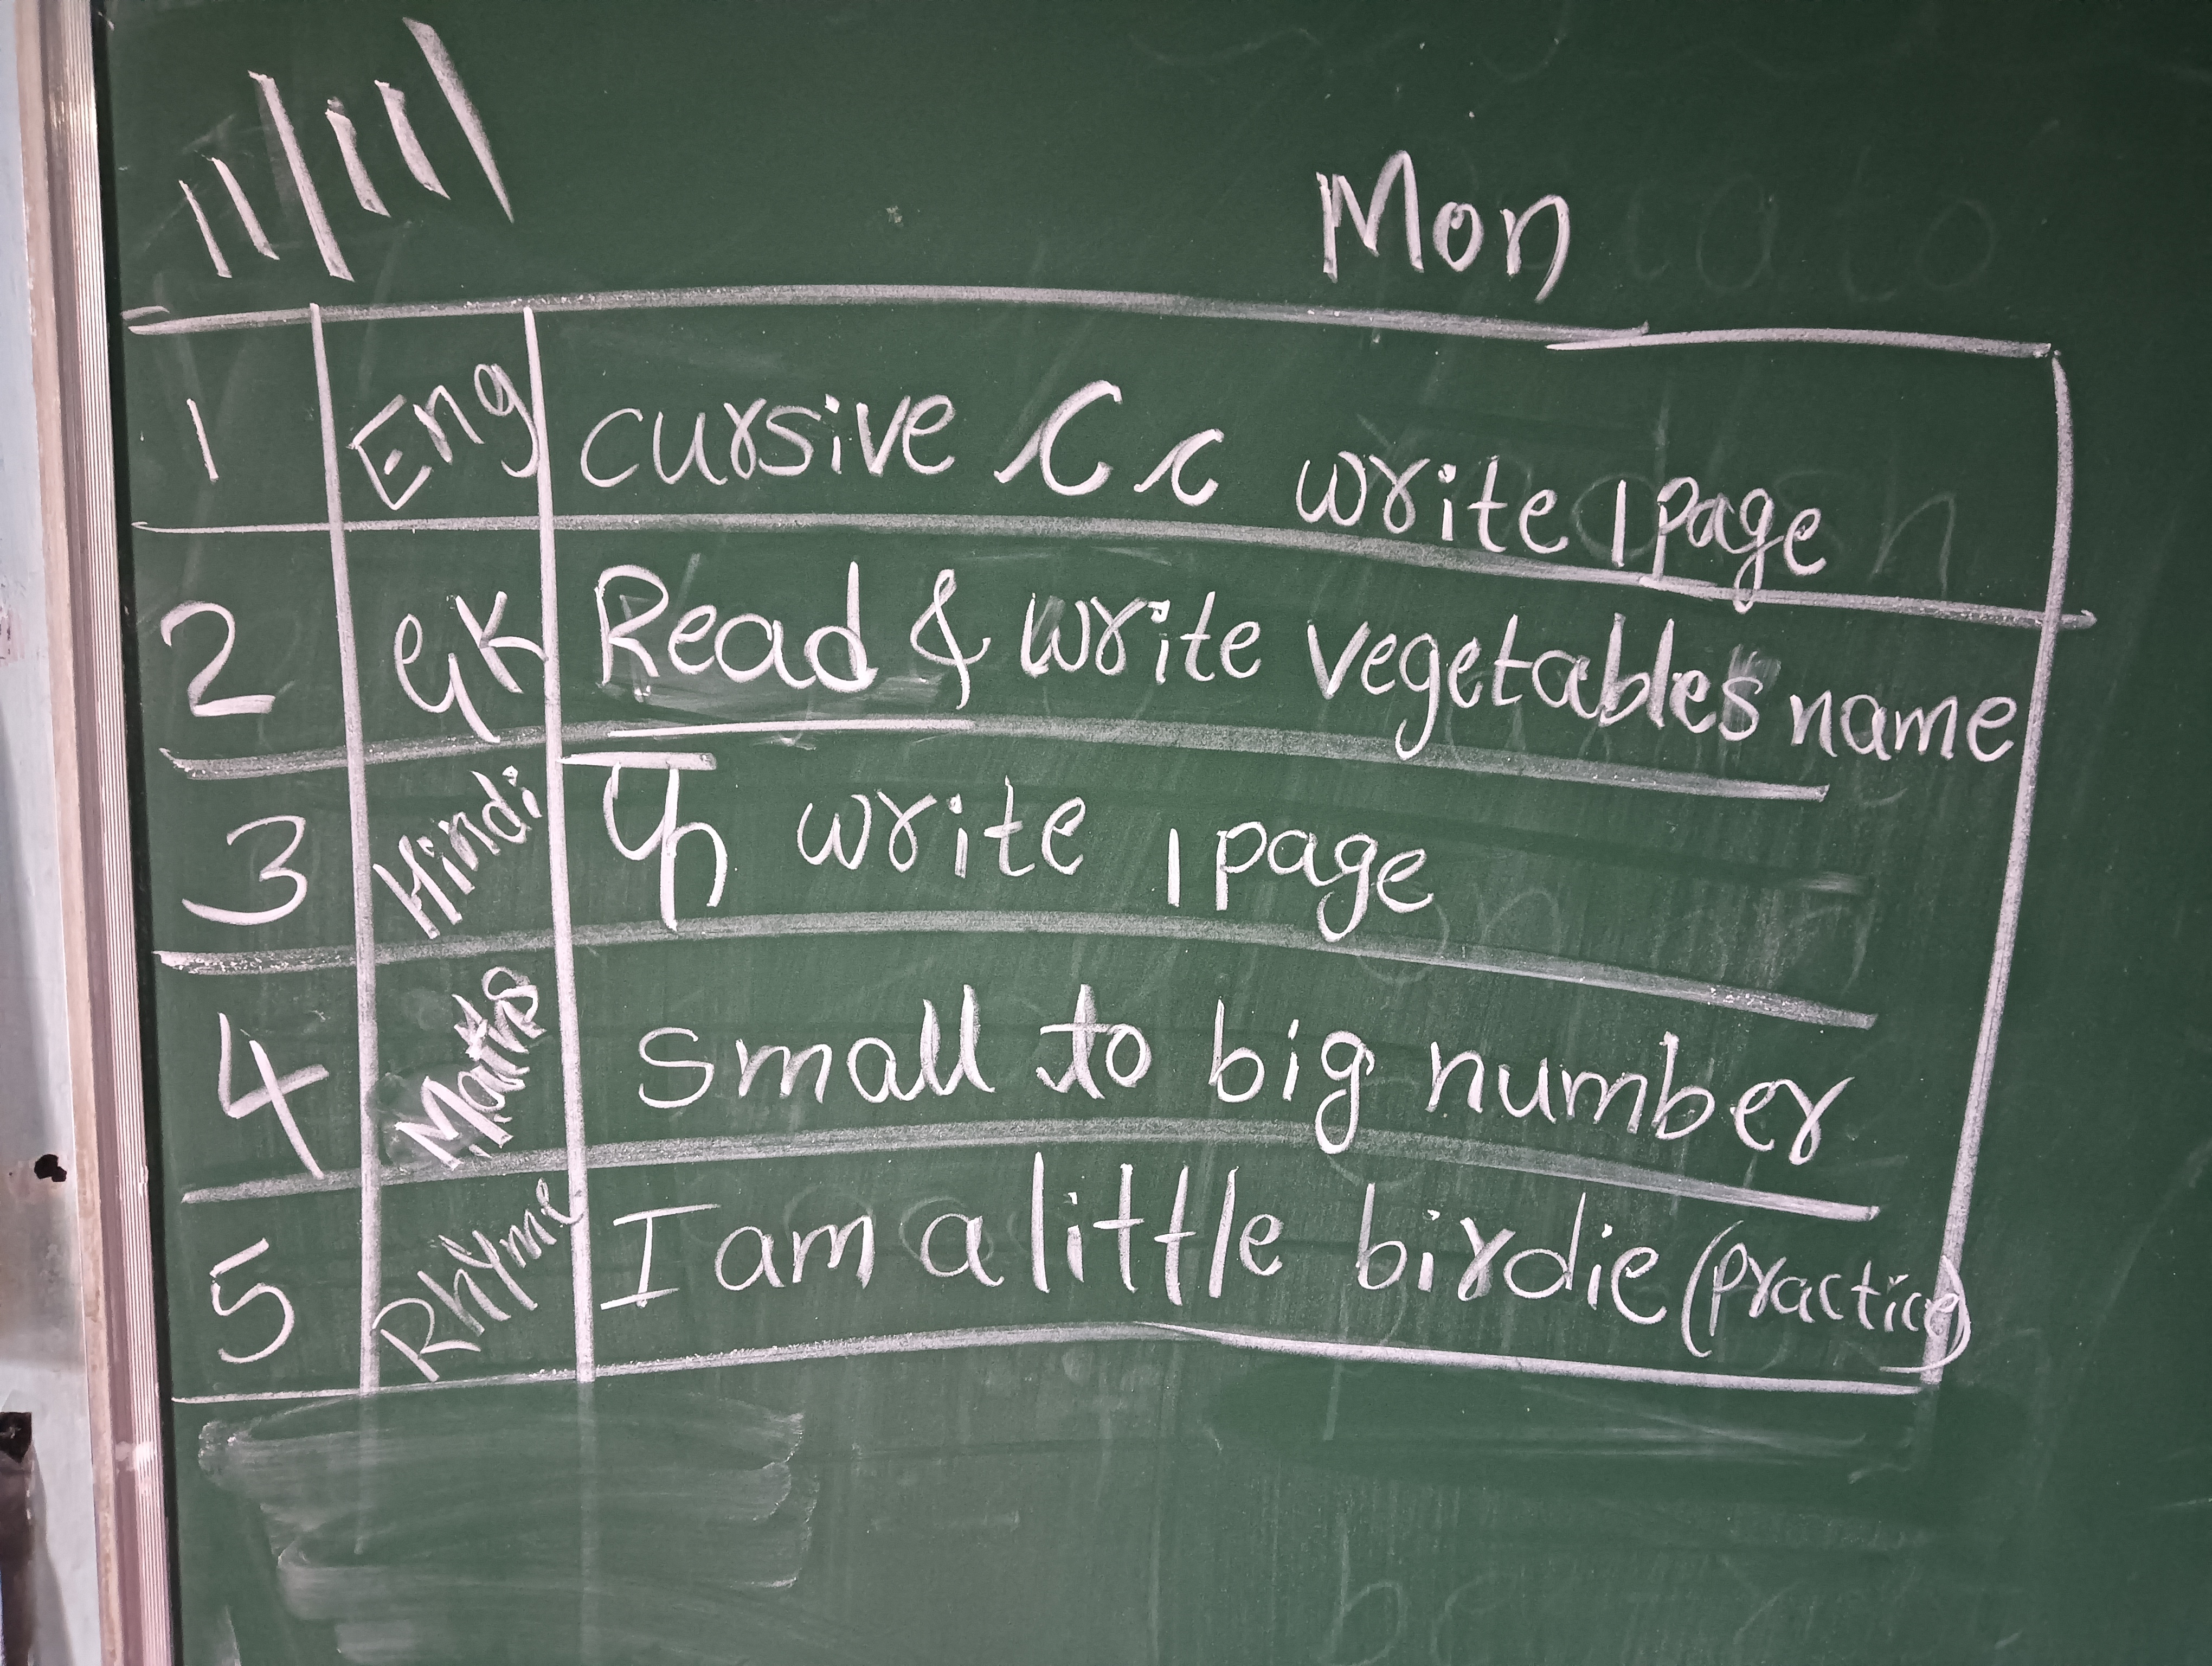 11/11/ Mon
1 Eng cursive C c write 1 page
2 GK Read & write vegetables name
3 Hindi फ write 1 page
4 Maths small to big number
5 Rhyme I am a little birdie (practice)